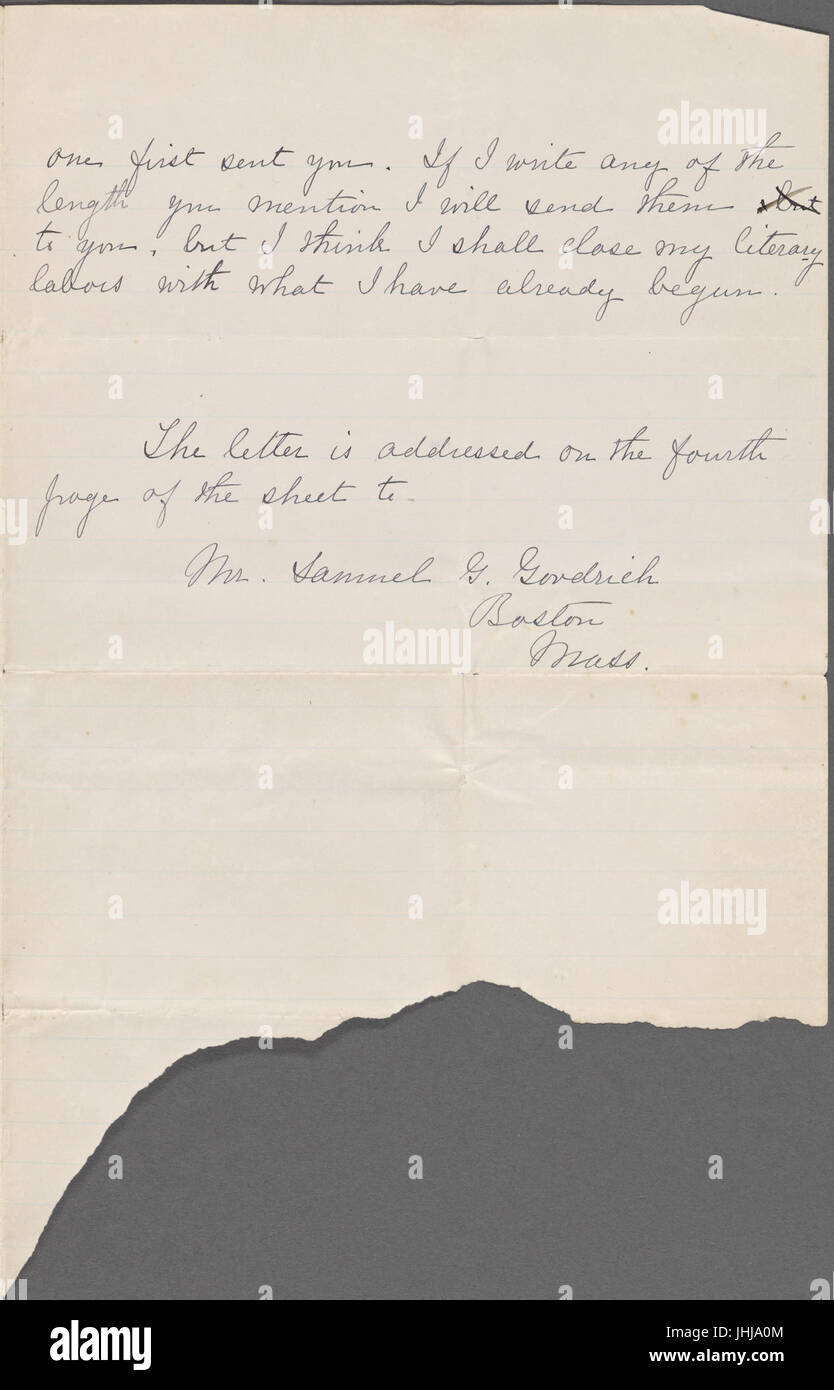 one first sent you. If I write any of the
length you mention I will send them
to you, but I think I shall close my literary
labors with what I have already begun.
The letter is addressed on the fourth
page of the sheet to
Mr. Samuel G. Goodrich
Boston
Mass.
alamy
alamy
alamy
alamy stock photo
JHJA0M
www.alamy.com